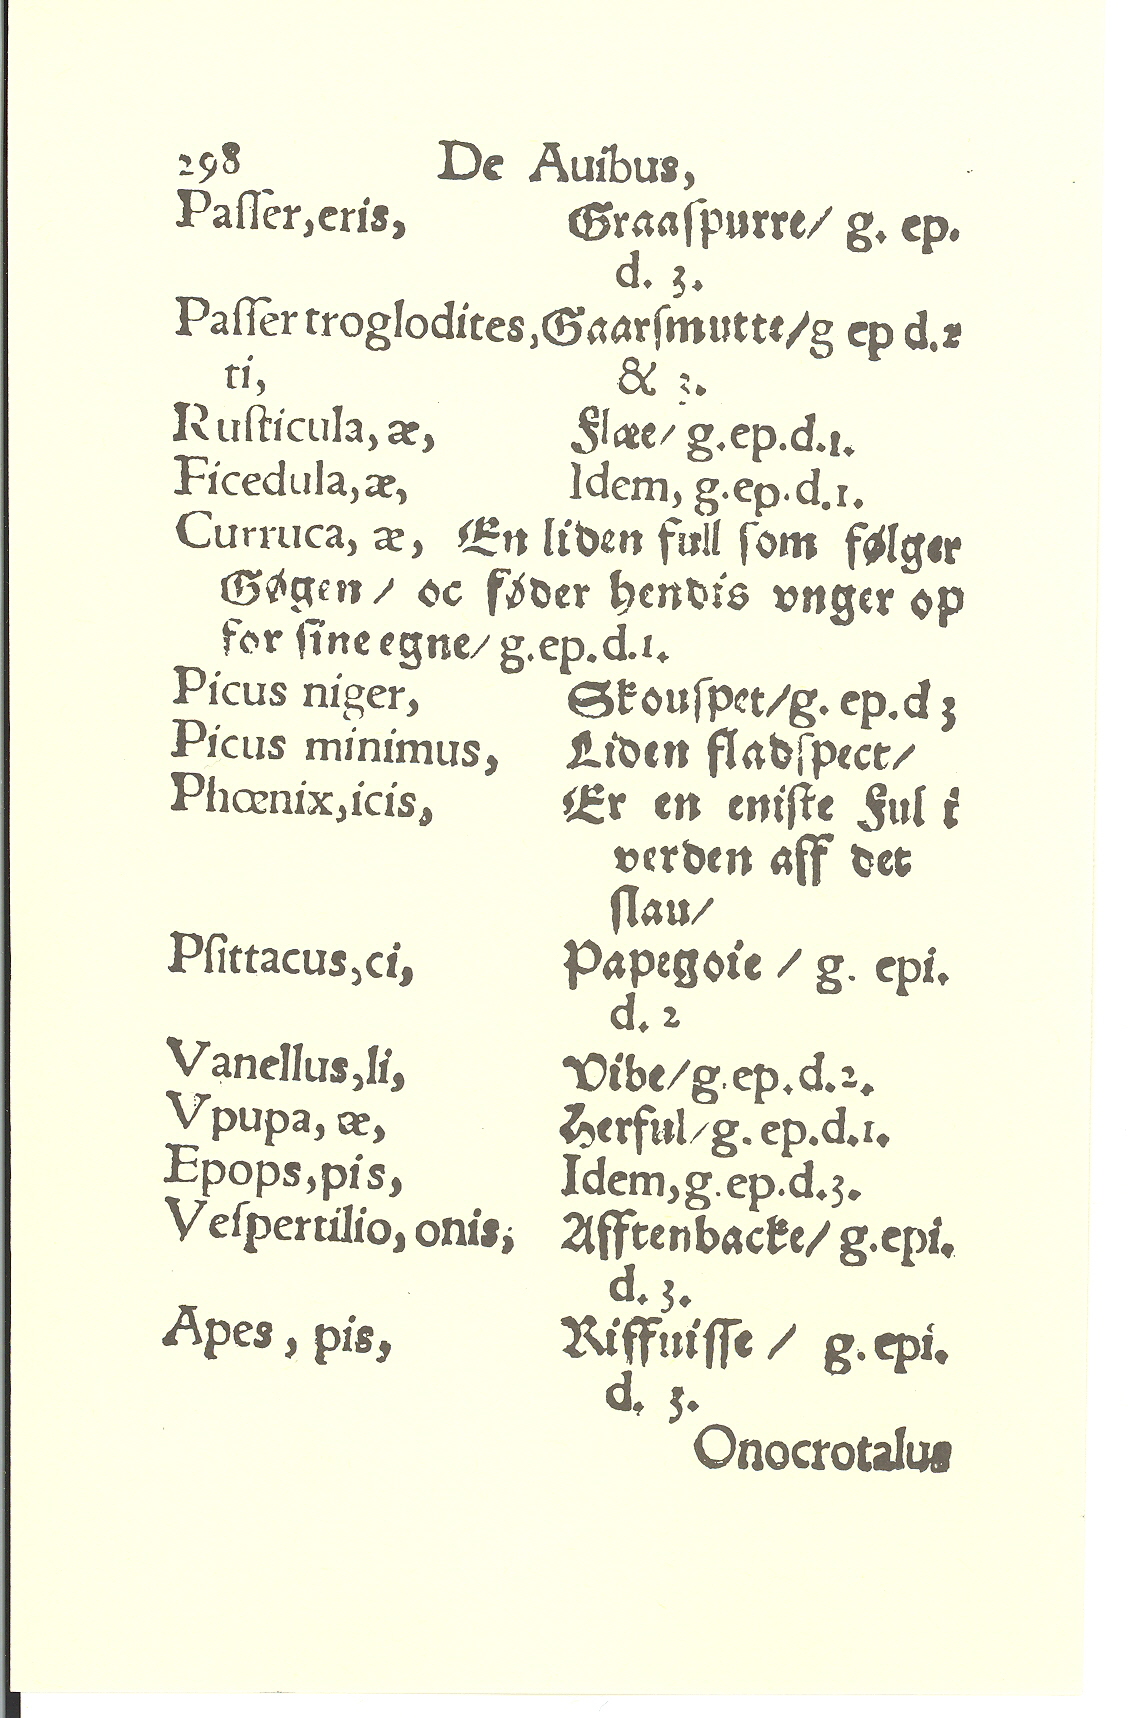 298 De Auibus,
Paſſer,eris, Graaſpurre/ g. ep.
d. 3.
Paſſer troglodites, Gaarſmutte/g ep d.2
ti, & 3.
Ruſticula, æ, Flæe/ g.ep.d.1.
Ficedula,æ, Idem, g.ep.d.1.
Curruca, æ, En liden full ſom følger
Gøgen / oc føder hendis vnger op
for ſine egne/ g.ep.d.1.
Picus niger, Skouſpet/g. ep.d 3
Picus minimus, Liden fladſpect/
Phœnix,icis, Er en eniſte Ful i
verden aff det
ſlau/
Pſittacus,ci, Papegoie / g. epi.
d. 2
Vanellus,li, Vibe/g.ep.d.2.
Vpupa, æ, Herful/g. ep.d.1.
Epops,pis, Idem,g.ep.d.3.
Veſpertilio, onis, Afftenbacke/ g.epi.
d. 3.
Apes, pis, Riffuiſſe / g.epi.
d. 3.
Onocrotalus